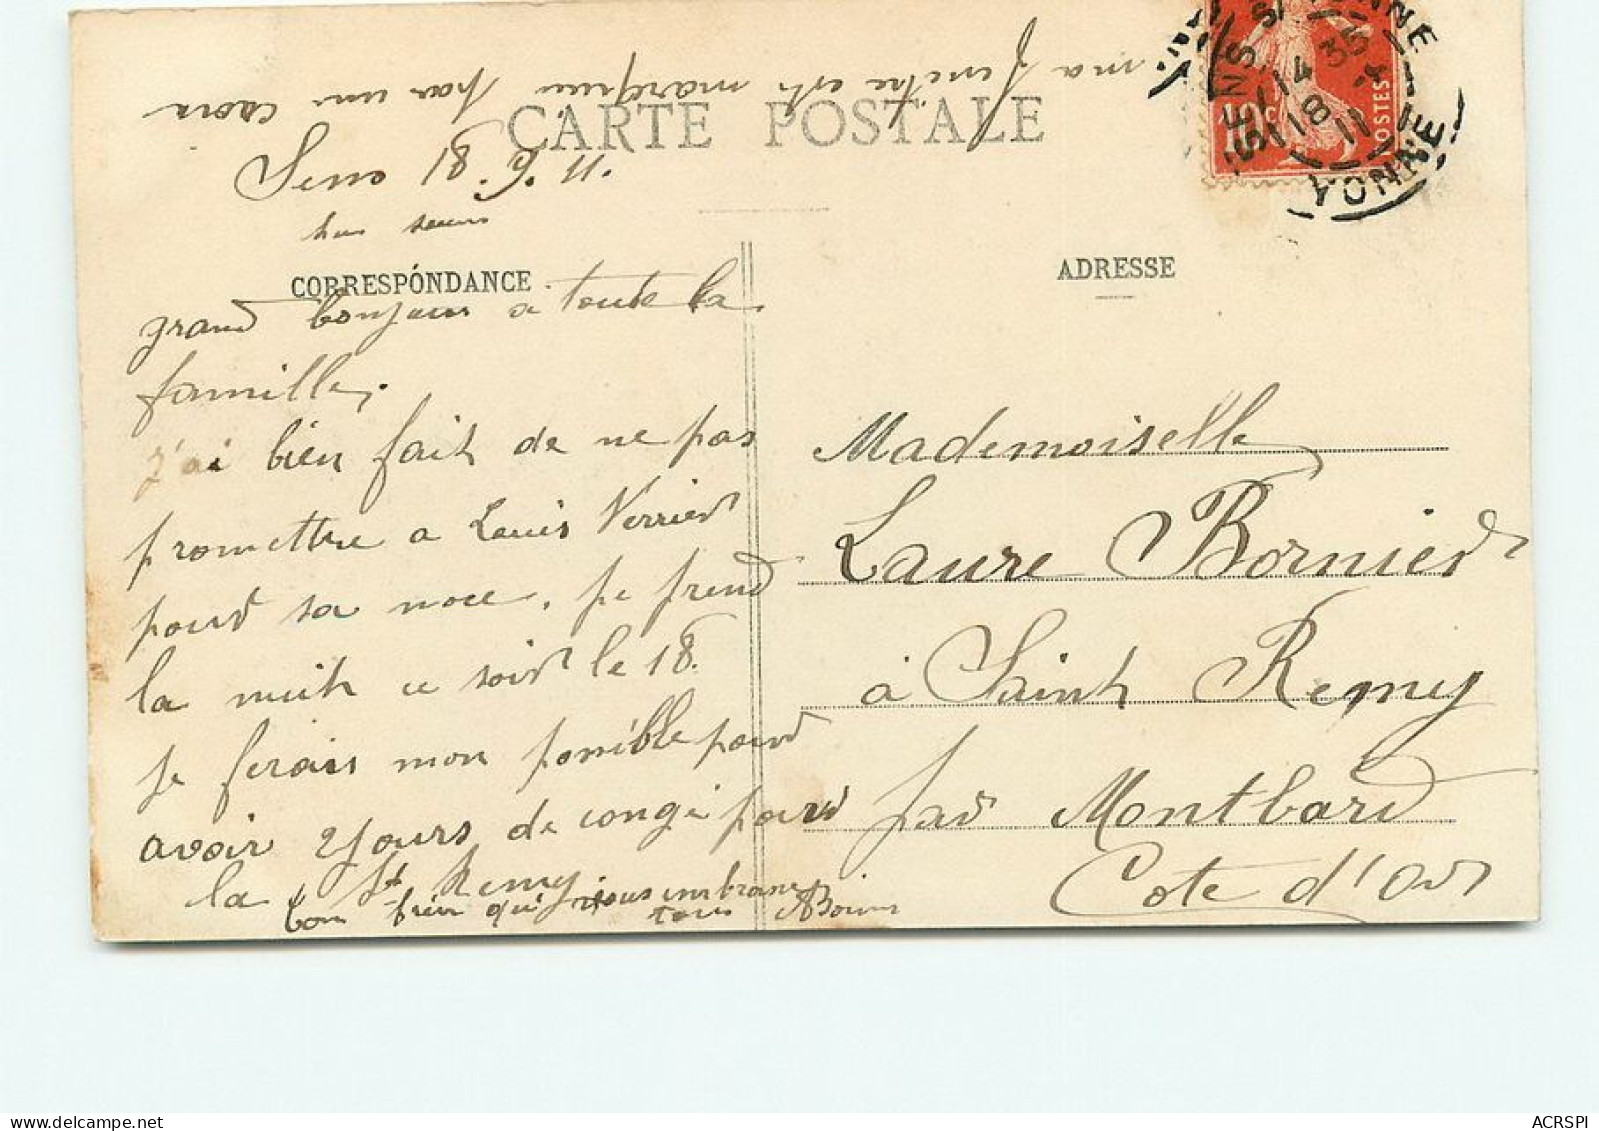 ma fenetre est marquee par une croix
CARTE POSTALE
SENS S/ YONNE
14 35
18 9
11
YONNE
10c
POSTES
Sens 18.9.11.
CORRESPONDANCE
grand bonjour a toute la
famille.
j'ai bien fait de ne pas
promettre a Louis Verrier
pour sa noce. je prend
la nuit ce soir le 18.
je ferais mon possible pour
avoir 2 jours de congé pour
la St Remy
ton frère qui vous embrasse
tous
ADRESSE
Mademoiselle
Laure Bornier
à Saint Remy
par Montbard
Cote d'Or
ACRSPI